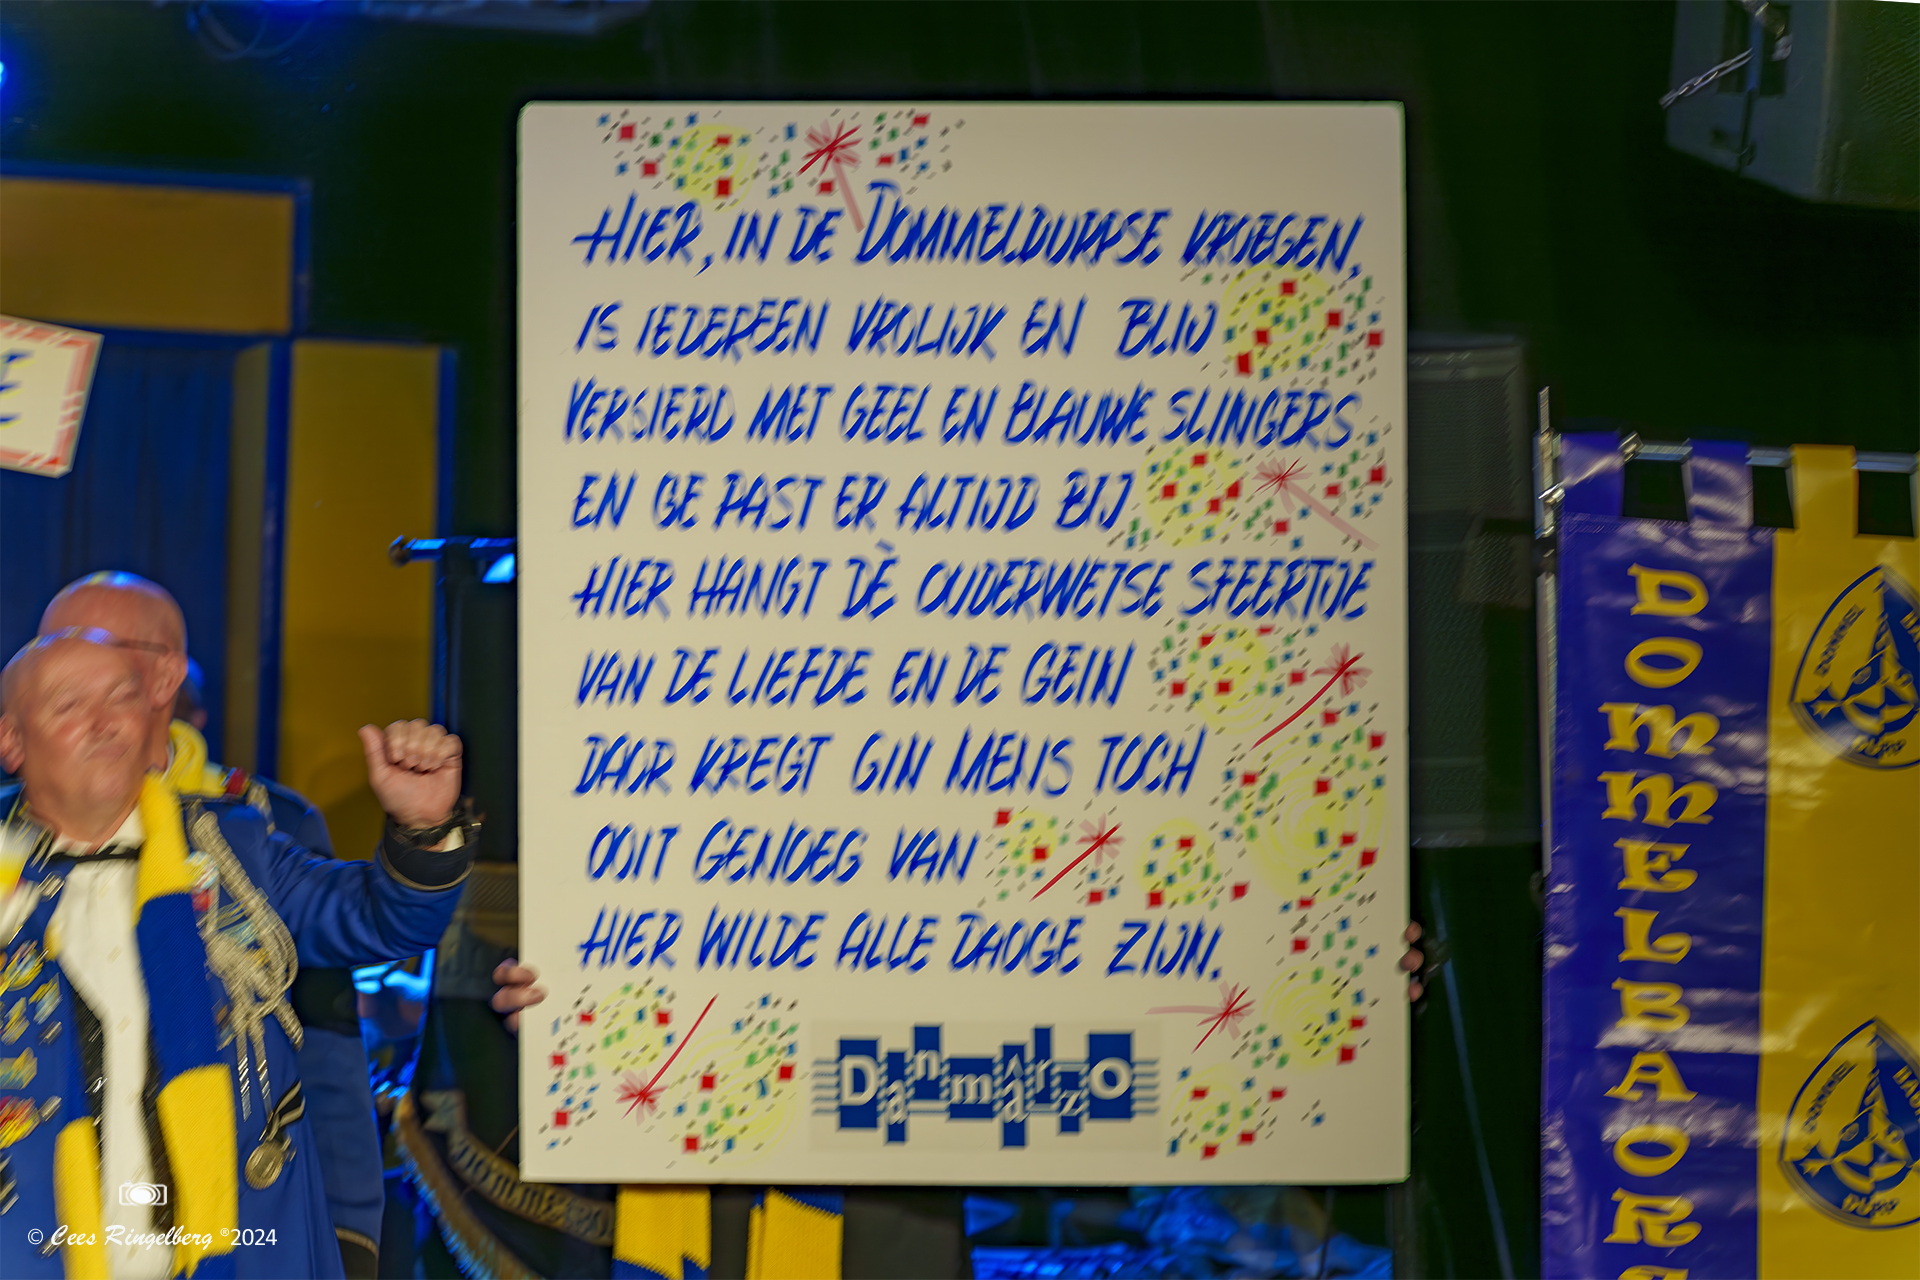 HIER, IN DE DOMMELDURPSE KROEGEN,
IS IEDEREEN VROLIJK EN BLIJ
VERSIERD MET GEEL EN BLAUWE SLINGERS
EN GE PAST ER ALTIJD BIJ
HIER HANGT DÈ OUDERWETSE SFEERTJE
VAN DE LIEFDE EN DE GEIN
DAOR KREGT GIN MENS TOCH
OOIT GENOEG VAN
HIER WILDE ALLE DAOGE ZIJN.
Danmârzo
DOMMELBAOR
DOMMEL
DURP
DOMMEL
DURP
© Cees Ringelberg ®2024